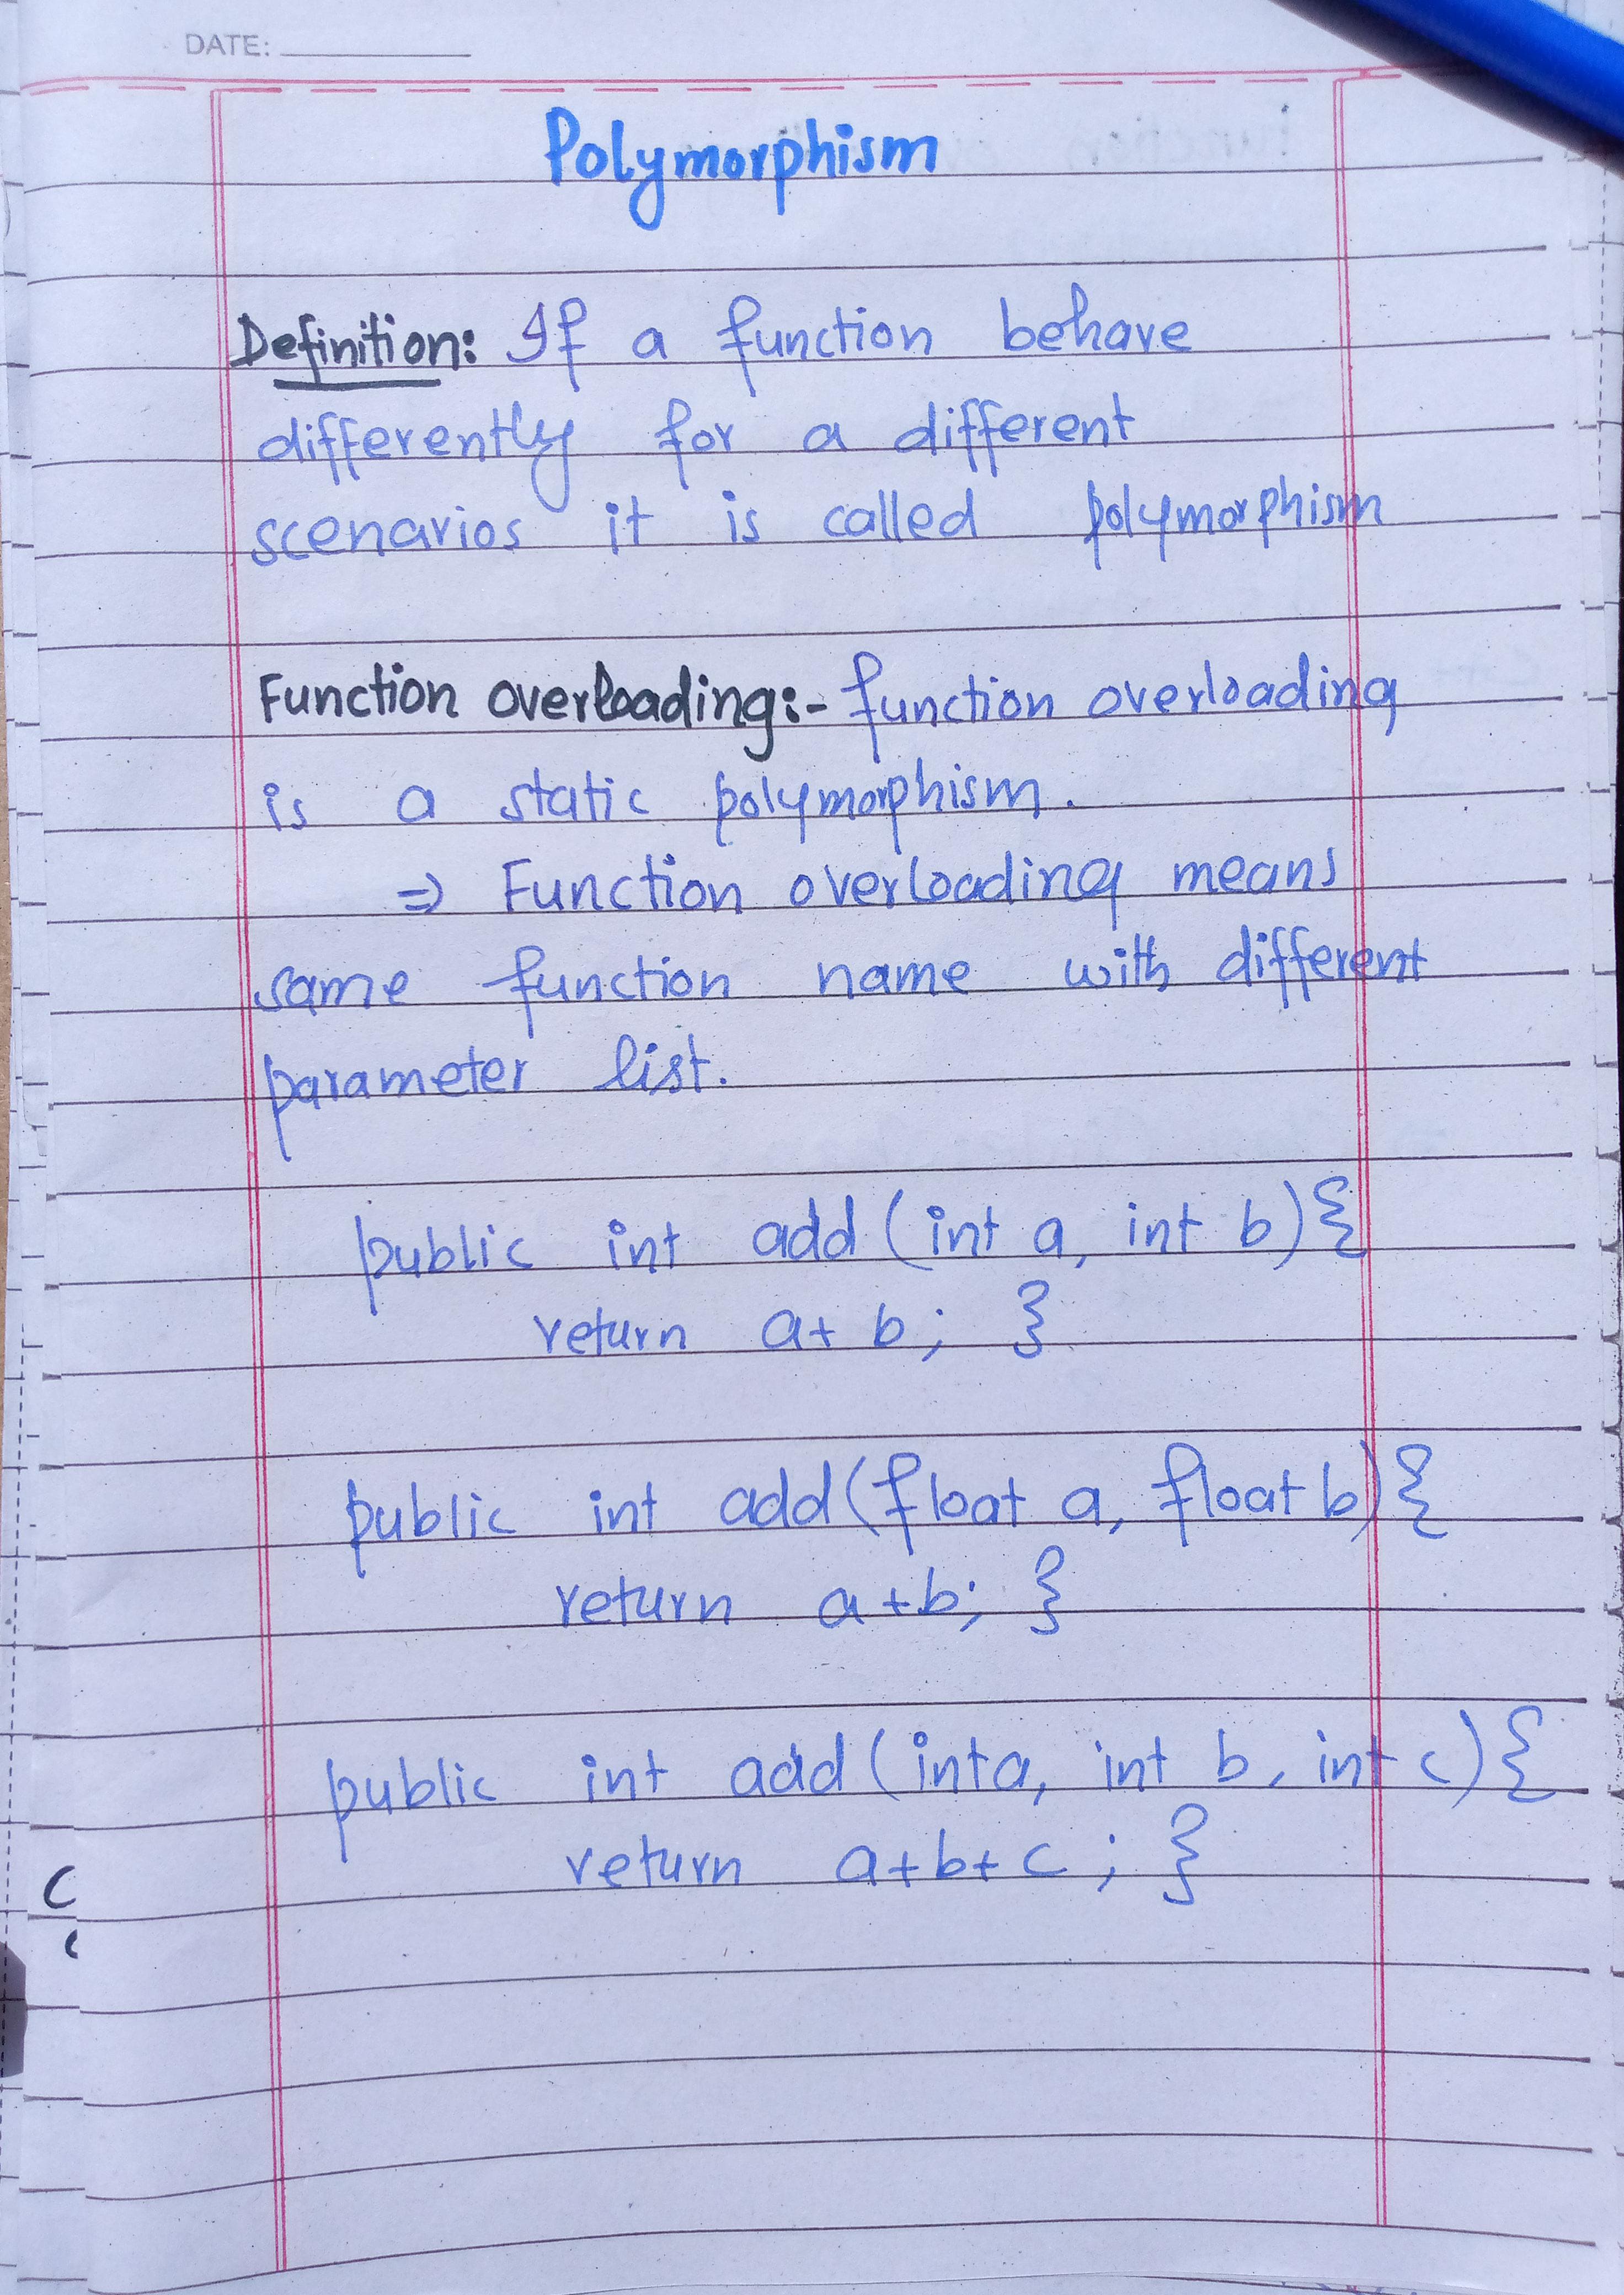 DATE:
Polymorphism
Definition: If a function behave
differently for a different
scenarios it is called polymorphism
Function overloading:- function overloading
is a static polymorphism.
⇒ Function overloading means
same function name with different
parameter list.
public int add (int a, int b){
return a+ b; }
public int add(float a, float b){
return a+b; }
public int add (int a, int b, int c){
return a+b+c; }